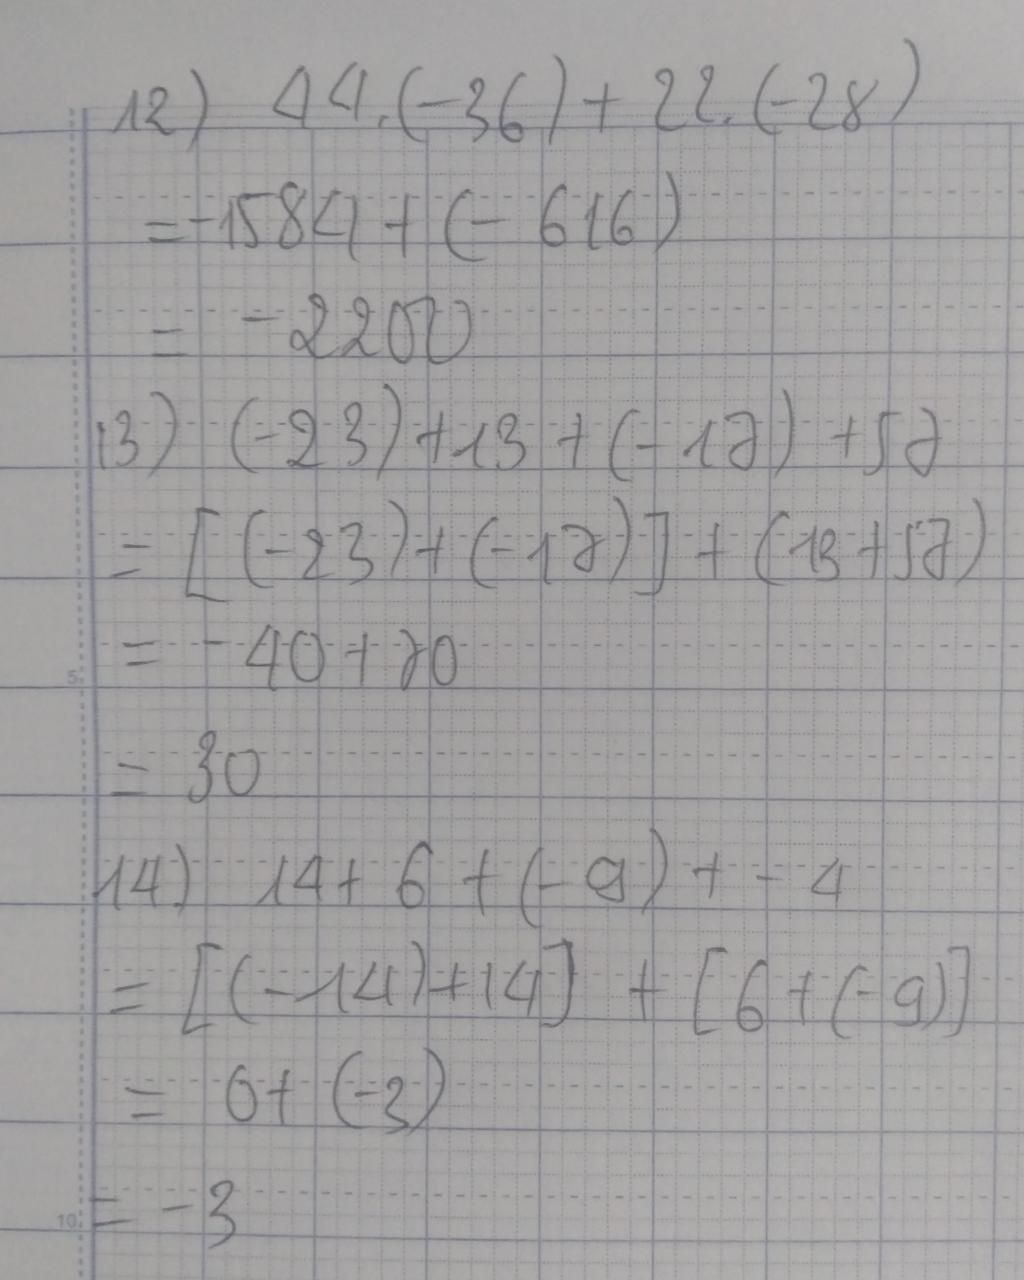 12) 44.(-36)+22.(-28)
=-1584+(-616)
= -2200
13) (-23)+13+(-17)+57
= [(-23)+(-17)]+(13+57)
= -40+70
= 30
14) 14+6+(-9)+-4
= [(-14)+14]+[6+(-9)]
= 0+(-3)
= -3
5
10